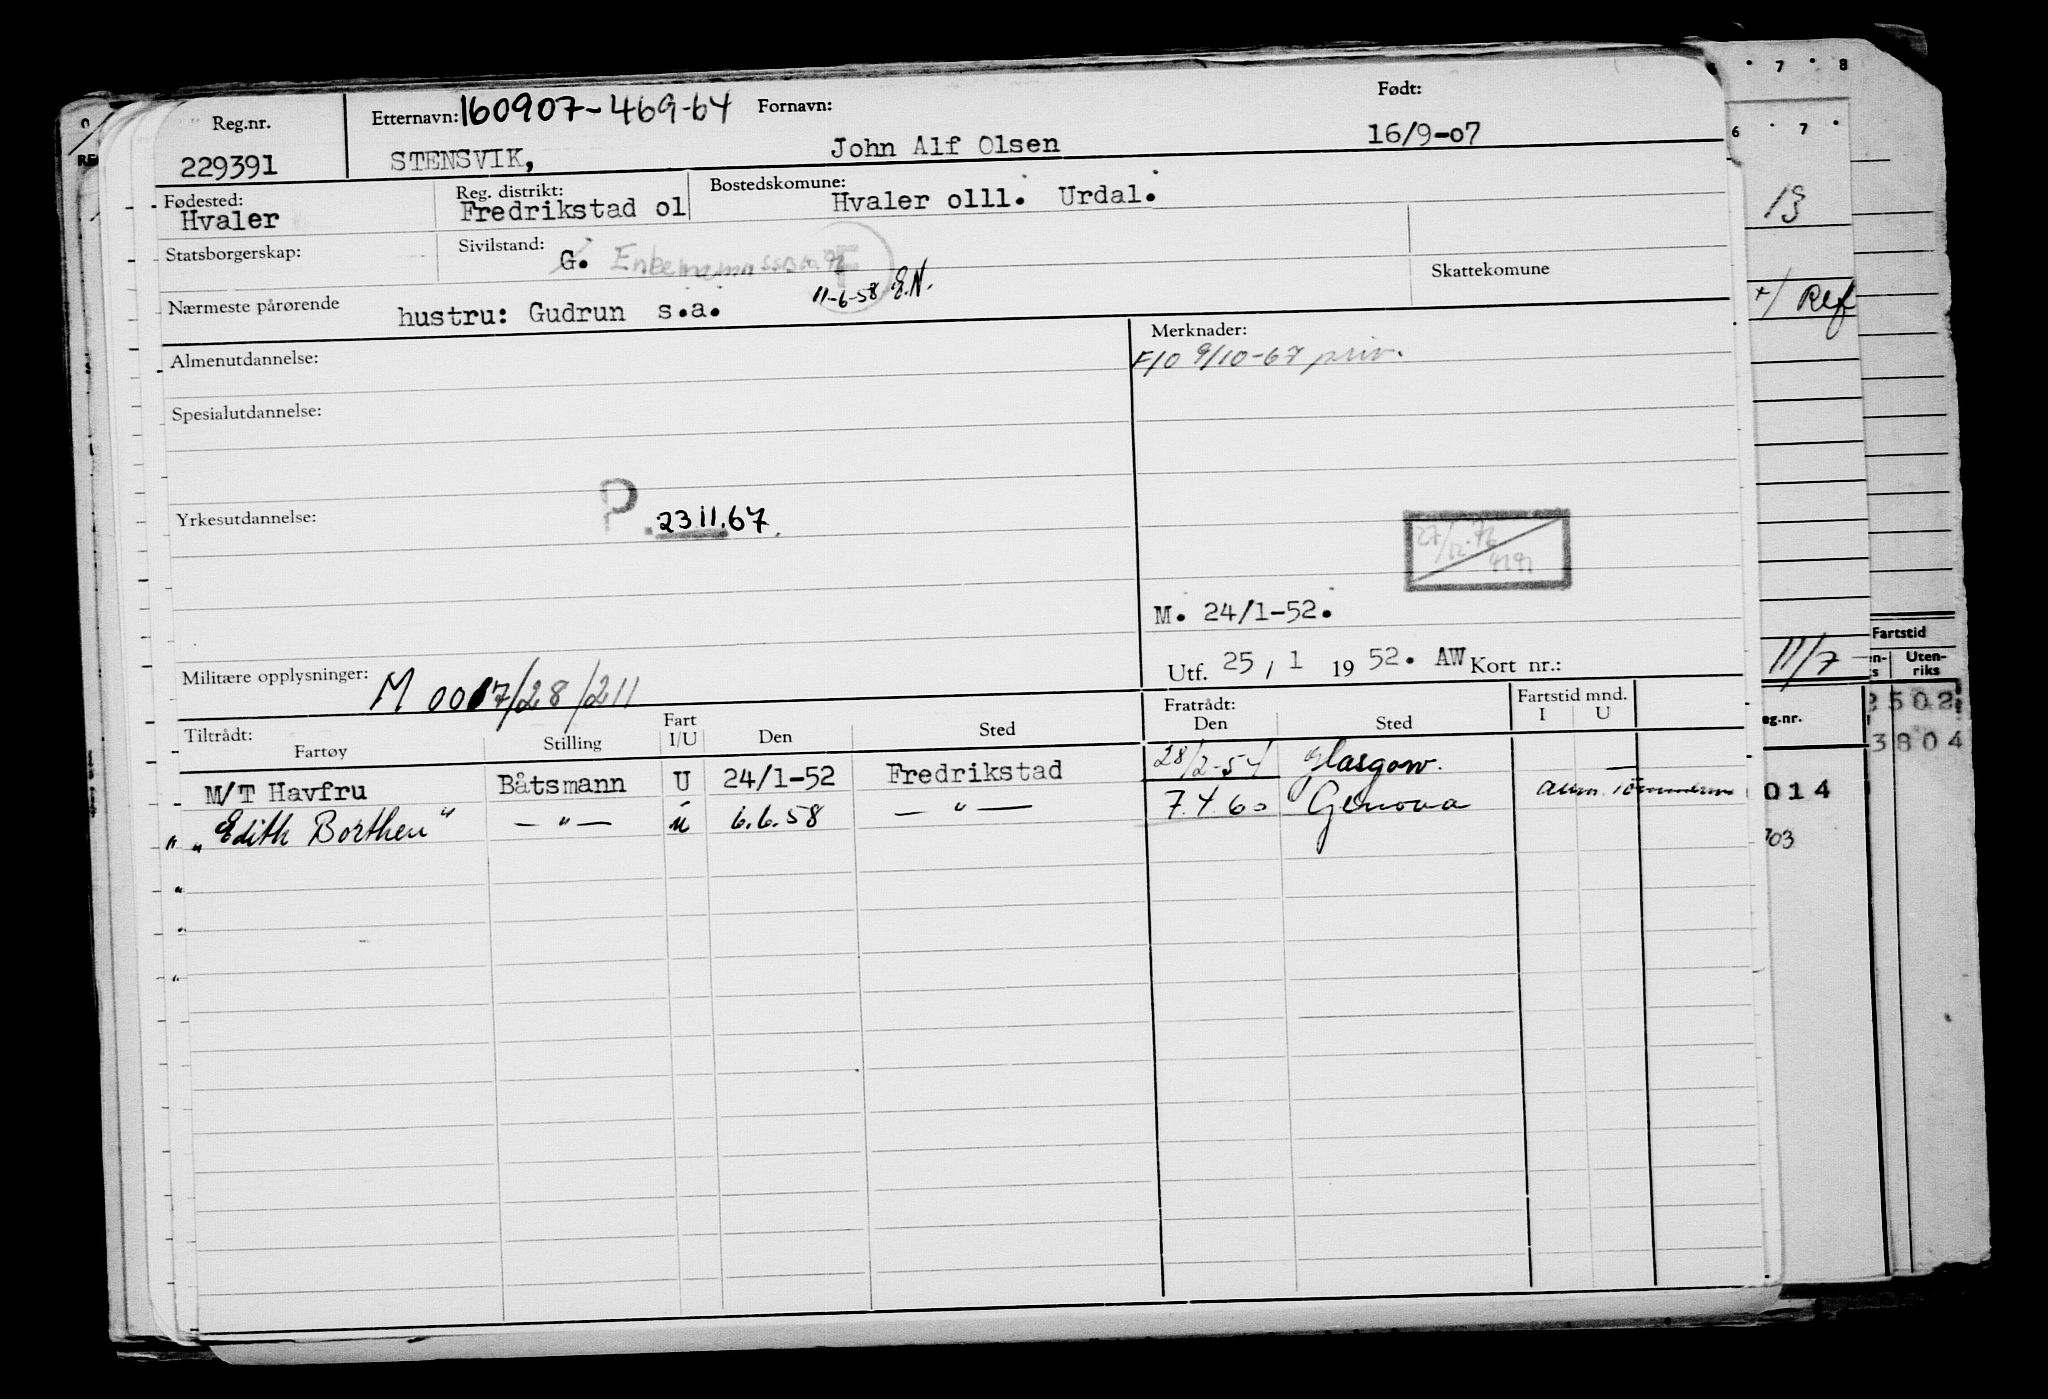 Reg.nr. Etternavn: 160907-469-64 Fornavn: Født:
229391 STENSVIK, John Alf Olsen 16/9-07
Fødested: Reg. distrikt: Bostedskomune:
Hvaler Fredrikstad ol Hvaler olll. Urdal.
Statsborgerskap: Sivilstand: G.
Skattekomune
Nærmeste pårørende hustru: Gudrun s.a. 11-6-58 E.N.
Almenutdannelse: Merknader:
F/O 9/10-67 priv.
Spesialutdannelse:
Yrkesutdannelse: P. 23.11.67.
M. 24/1-52.
Militære opplysninger: M 0017/28/211 Utf. 25 / 1 1952. AW Kort nr.:
Tiltrådt: Fratrådt: Fartstid mnd.
Fartøy Stilling Fart I/U Den Sted Den Sted I U
M/T Havfru Båtsmann U 24/1-52 Fredrikstad 28/2-54 Glasgow. —
" „Edith Borthen" — " — u 6.6.58 — " — 7.4.60 Genova
6 7 8
6 7
13
+/ Ref
11/7
Fartstid
Uten-
riks
2502
3804
eg.nr.
014
703